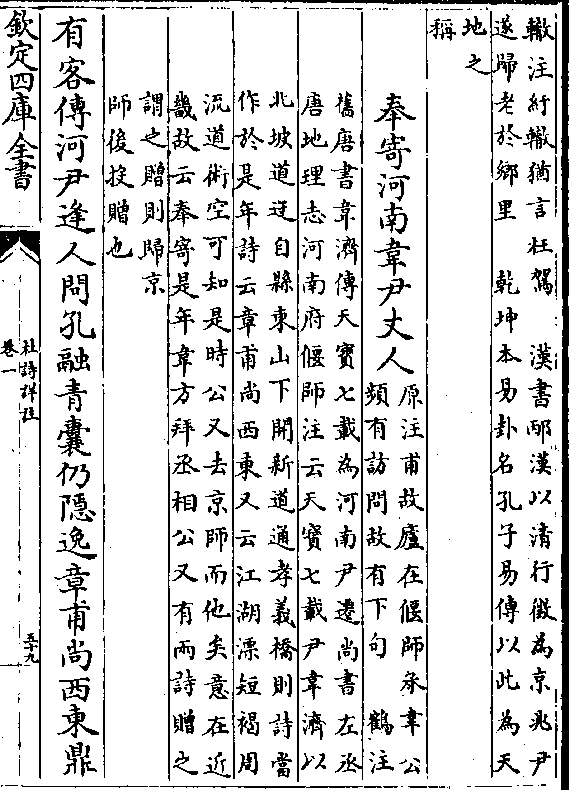 轍注紆轍猶言枉駕　漢書邴漢以清行徴為京兆尹
遂歸老於鄉里　乾坤本易卦名孔子易傳以此為天
地之
稱
奉寄河南韋尹丈人
原注甫故廬在偃師承韋公
頻有訪問故有下句　鶴注
舊唐書韋濟傳天寳七載為河南尹遷尚書左丞
唐地理志河南府偃師注云天寳七載尹韋濟以
北坡道迂自縣東山下開新道通孝義橋則詩當
作於是年詩云章甫尚西東又云江湖漂短褐周
流道術空可知是時公又去京師而他矣意在近
畿故云奉寄是年韋方拜丞相公又有兩詩贈之
謂之贈則歸京
師後投贈也
有客傳河尹逢人問孔融青囊仍隱逸章甫尚西東鼎
欽定四庫全書
杜詩詳註
卷一
五十九